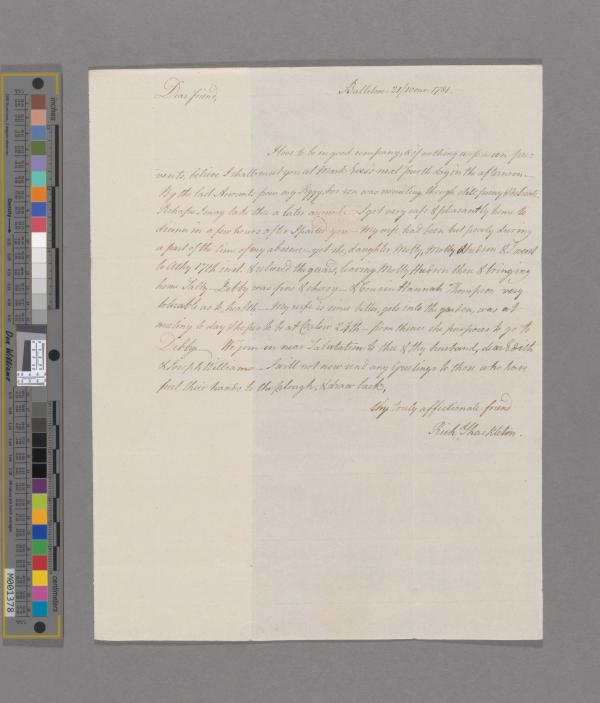 Dear friend,
Ballitore 21/10mo 1781.
I love to be in good company, & if nothing unforeseen pre-
vents, believe I shall meet you at next fourth day in the afternoon
By the last Accounts from my Peggy, her son was recruiting though still
Perhaps I may take this a later I got very safe & pleasantly home to
dinner in a few hours after I parted you My wife had been but poorly during
a part of the time of my absence yet she, daughter Molly, Molly Hudson & I went
to Athy 17th inst & relieved the guard, leaving Molly Hudson there & bringing
home Sally Debby was fine & cheery & Cousin Hannah Thompson very
tolerable as to health My wife is some better, gets into the garden, was at
meeting to day & hopes to be at Carlow 24th from thence she purposes to go to
Debby We join in near Salutation to thee & thy husband, dear Edith
& Joseph Williams I will not now send any Greetings to those who have
put their hands to the plough, & draw back,
thy truly affectionate friend
Rich. Shackleton.
inches
centimetres
Density
Don Williams
M001378